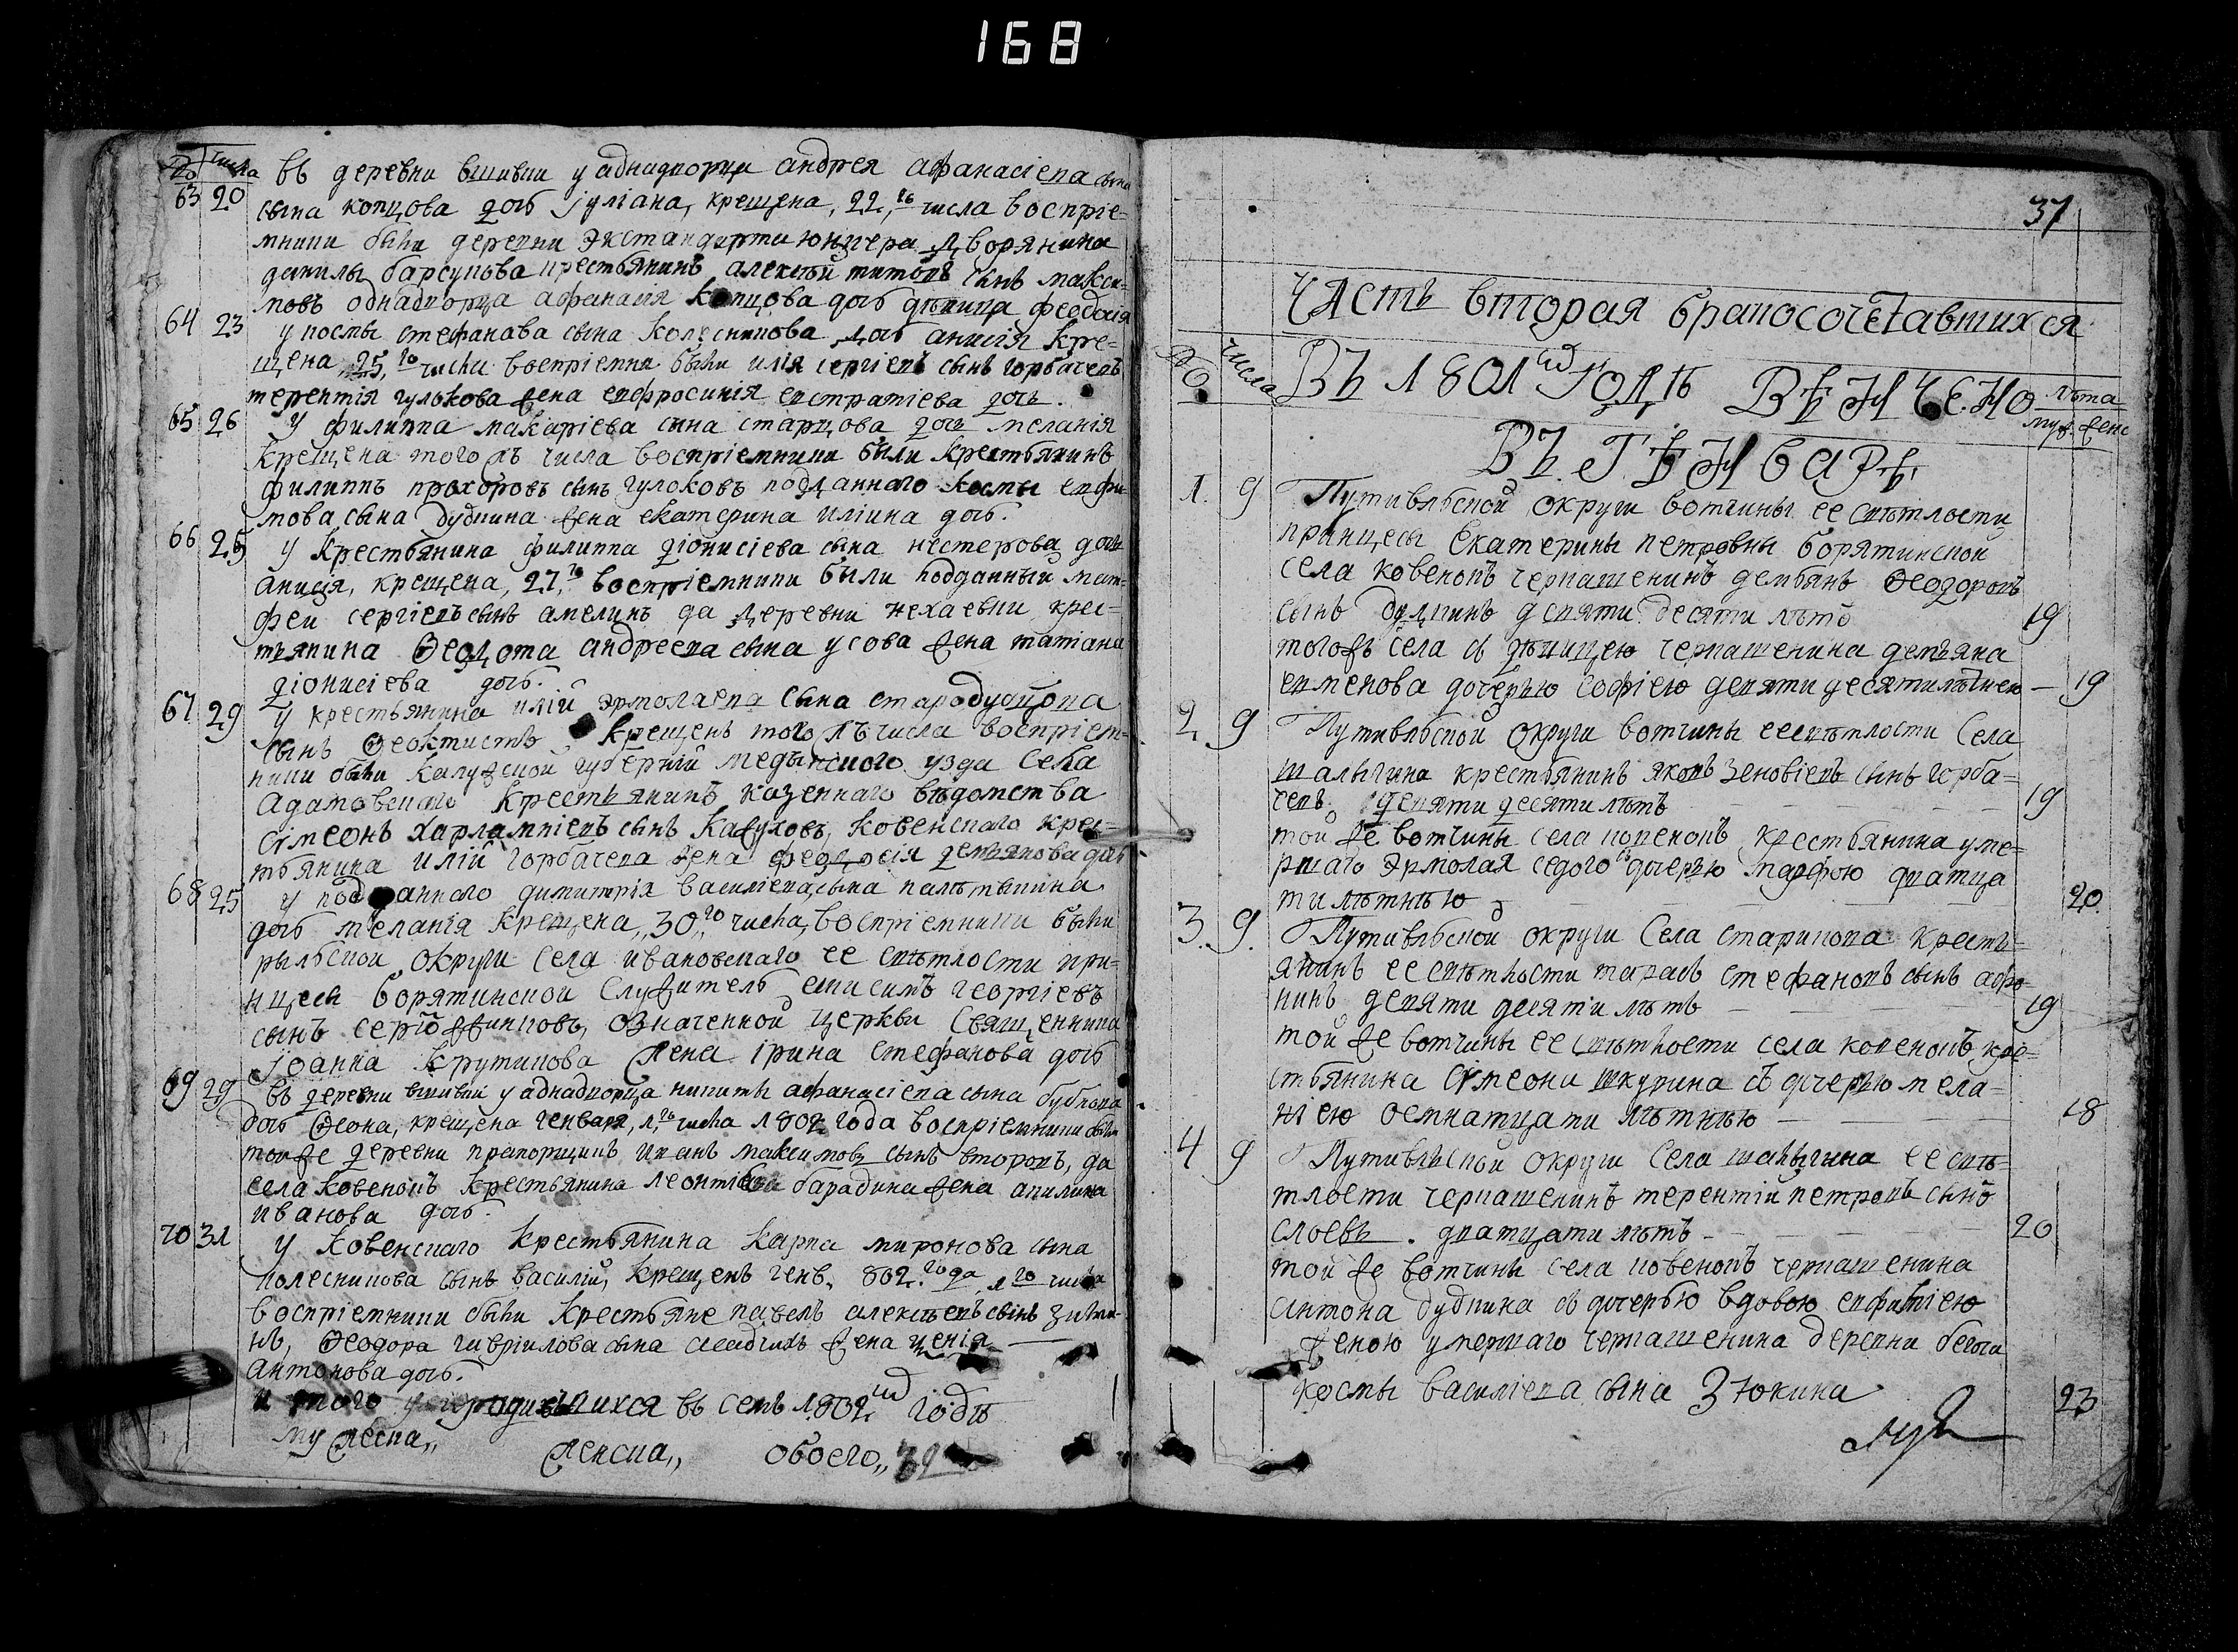 168
№ числа въ деревни вшивки у аднадворца андрея афанасіева сына
63 20 сына копцова дочь іуліана, крещена, 22, го числа воспріе=
мники были деревни дворянина
данилы барсукова крестьянинъ алексѣй титовъ сынъ макси=
мовъ однадворца афанасія копцова дочь дѣвица феодосія
64 23 у космы стефанава сына колесникова дочь анисія кре=
щена, 25, го числа воспріемники были илія сергіевъ сынъ горбачевъ
терентія гулькова жена евфросинія евстратіева дочь.
65 26 у филиппа макаріева сина старцова дочь меланія
крещена того жъ числа воспріемники были крестьянинъ
филиппъ прохоровъ сынъ гулоковъ подданнаго космы евфи
мова сына дудкина жена екатерина иліина дочь.
66 25 у крестьянина филиппа діонисіева сына нестерова дочь
анисія, крещена, 27, го воспріемники были подданный мат=
фей сергіевъ сынъ амелинъ да деревни нехаевки крес=
тьянина Ѳеодота андреева сына усова жена татіана
діонисіева дочь.
67 29 у крестьянина иліи эрмолаева сына
сынъ Ѳеоктистъ крещенъ того жъ числа воспріем=
ники были калужской губерніи медынскаго уезда села
адамовскаго крестьянинъ казеннаго вѣдомства
Сѵмеонъ харлампіевъ сынъ кожуховъ, ковенскаго крес=
тьянина иліи горбачева жена феодосія демьянова дочь
68 25 у подданнаго димитрія василіева сына
дочь меланія крещена, 30, го числа, воспріемники были
рыльской округи села ивановскаго ее свѣтлости при=
нцесы борятинской служитель анисимъ георгіевъ
сынъ означенной церкви священника
іоанна крутикова жена ірина стефанова дочь
69 29 въ деревни вшивки у аднадворца никиты афанасіева сына бубнова
дочь Ѳеона, крещена генваря, 1, го числа 1802 года воспріемники были
той же деревни прапорщикъ иванъ максимовъ сынъ второвъ, да
села ковенокъ крестьянина леонтія барадина жена акилина
иванова дочь.
70 31 У ковенскаго крестьянина карпа миронова сына
колесникова сынъ василій, крещенъ генв. 802. года 1 го числа
воспріемники были крестьяне павелъ алексѣевъ сынъ
нъ, Ѳеодора гавріилова сына жена ксенія
антонова дочь.
и того родившихся въ семъ 1802 годѣ
мужеска,, женска,, обоего,,
37
Часть вторая бракосочетавшихся
№ числа Въ 1801 мъ годѣ вѣнчено лѣта
муж. жен.
Въ генварѣ
1. 9 Путивльской округи вотчины ее свѣтлости
принцесы Екатерины петровны борятинской
села ковенокъ черкашенинъ демьянъ Ѳеодоровъ
сынъ дудкинъ девяти десяти лѣтъ 19
тогожъ села съ дѣвицею черкашенина демьяна
семенова дочерью софіею девяти десятилѣтнею — 19
2 9 Путивльской округи вотчины ее свѣтлости села
шалыгина крестьянинъ яковъ зеновіевъ сынъ горба=
чевъ девяти десяти лѣтъ 19
той же вотчины села ковенокъ крестьянина уме=
ршаго эрмолая седого съ дочерью марфою дватца
ти лѣтнею 20.
3. 9. Путивльской округи села старикова кресть=
янинъ ее свѣтлости тарасъ стефановъ сынъ афо
нинъ девяти десяти лѣтъ 19
той же вотчины ее свѣтлости села ковенокъ кре=
стьянина Сѵмеона шкурина съ дочерью мела=
ніею осмнатцати лѣтнею 18
4 9 Путивльской округи села шалыгина ее свѣ=
тлости черкашенинъ терентій петровъ сынъ
слоевъ. дватцати лѣтъ 20
той же вотчины села ковенокъ черкашенина
антона дудкина съ дочерью вдовою евфиміею
женою умершаго черкашенина деревни
космы василіева сына Зюкина 23